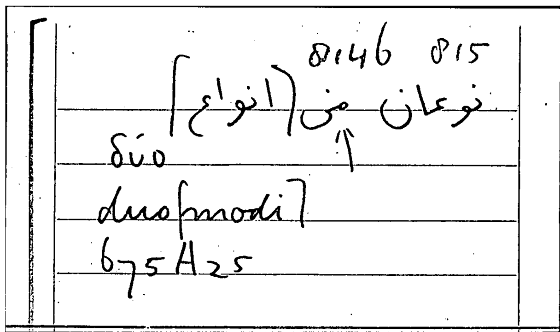 8,46 8,5
نوعان من (انواع]
δύο
duo[modi]
675A25